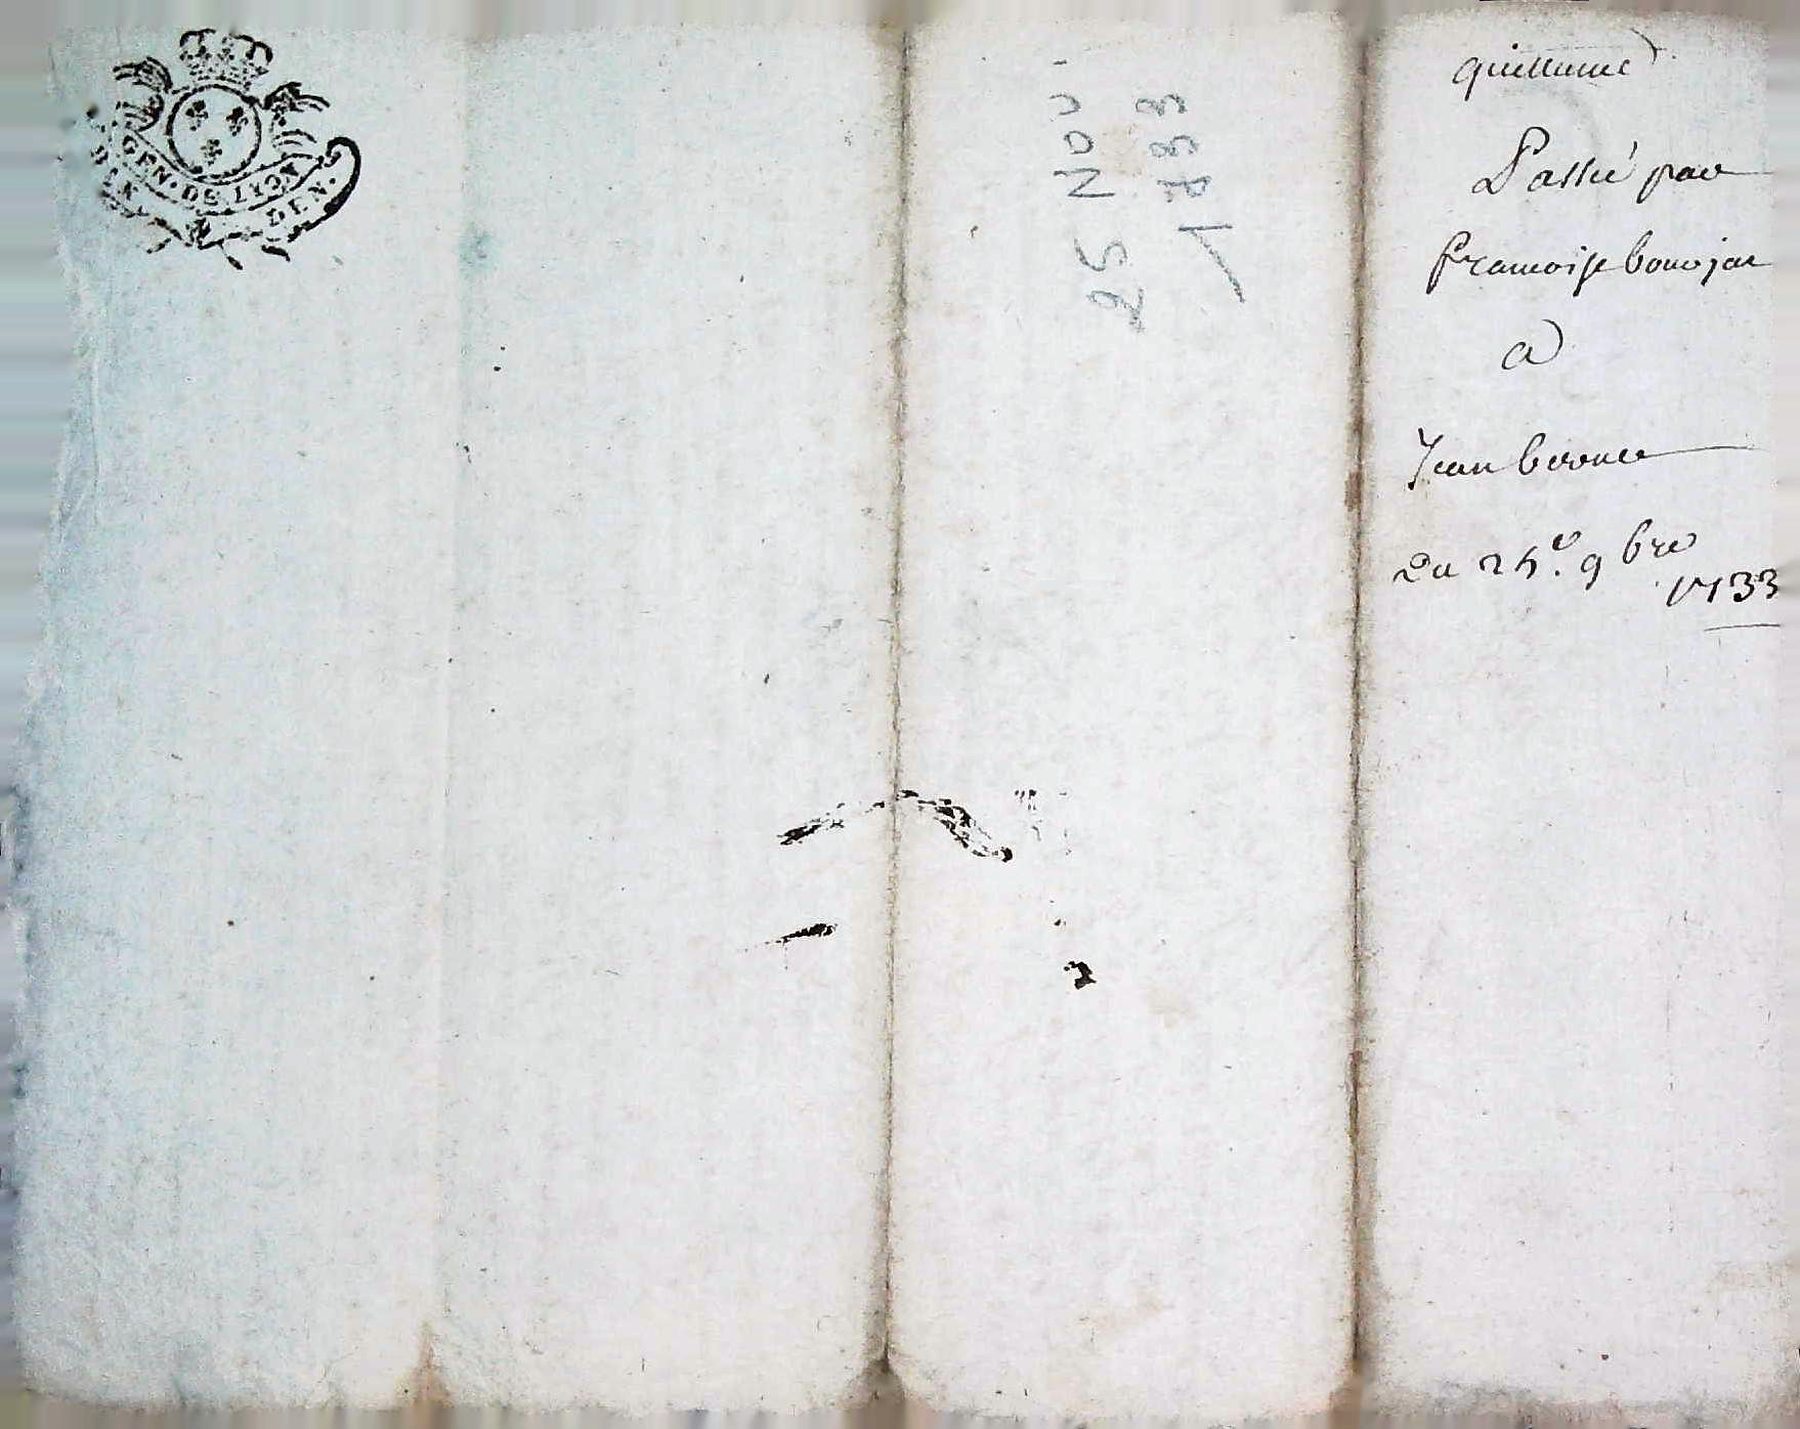 GEN. DE LYON
DEN.
25 NOV
1733
quittance
Passée par
francoise bonnjar
a
Jean
Du 25e. 9bre
1733